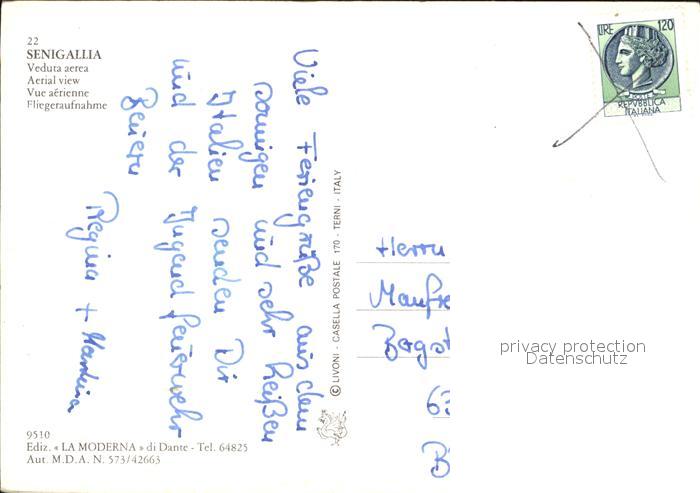 22
SENIGALLIA
Veduta aerea
Aerial view
Vue aérienne
Fliegeraufnahme
LIRE 120
POSTE
REPVBBLICA
ITALIANA
Viele Feriengrüße aus dem
sonnigen und sehr heißen
Italien senden Dir
und der Jugendfeuerwehr
Regina + Martina
© LIVONI - CASELLA POSTALE 170 - TERNI - ITALY
Herrn
Manfre
Bergst
privacy protection
Datenschutz
63
B
9510
Ediz. « LA MODERNA » di Dante - Tel. 64825
Aut. M.D.A. N. 573/42663